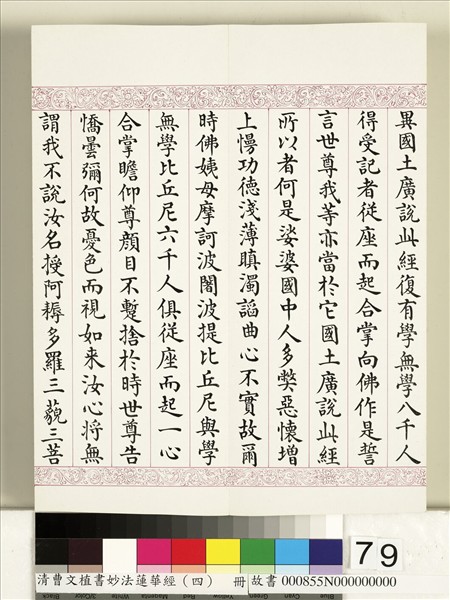 異國土廣說此經復有學無學八千人
得受記者從座而起合掌向佛作是誓
言世尊我等亦當於它國土廣說此經
所以者何是娑婆國中人多弊惡懷增
上慢功德淺薄瞋濁諂曲心不實故爾
時佛姨母摩訶波闍波提比丘尼與學
無學比丘尼六千人俱從座而起一心
合掌瞻仰尊顏目不暫捨於時世尊告
憍曇彌何故憂色而視如来汝心將無
謂我不說汝名授阿耨多羅三藐三菩
79
清曹文植書妙法蓮華經（四） 冊 故書 000855N000000000